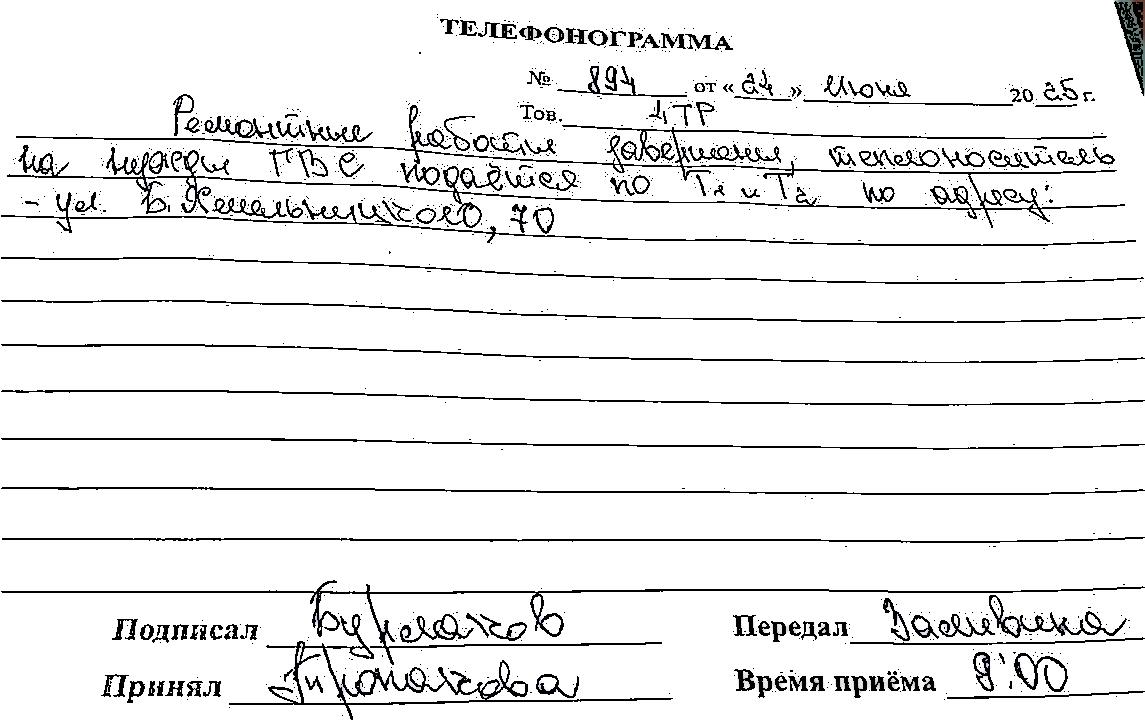 ТЕЛЕФОНОГРАММА
№ 894 от «24» Июня 2025 г.
Тов. 4ТР
Ремонтные работы завершены, теплоноситель
на нужды ГВС подаётся по Т1 и Т2 по адресу:
- ул. Б. Хмельницкого, 70
Подписал Бурмаков Передал Заливина
Принял Время приёма 9:00